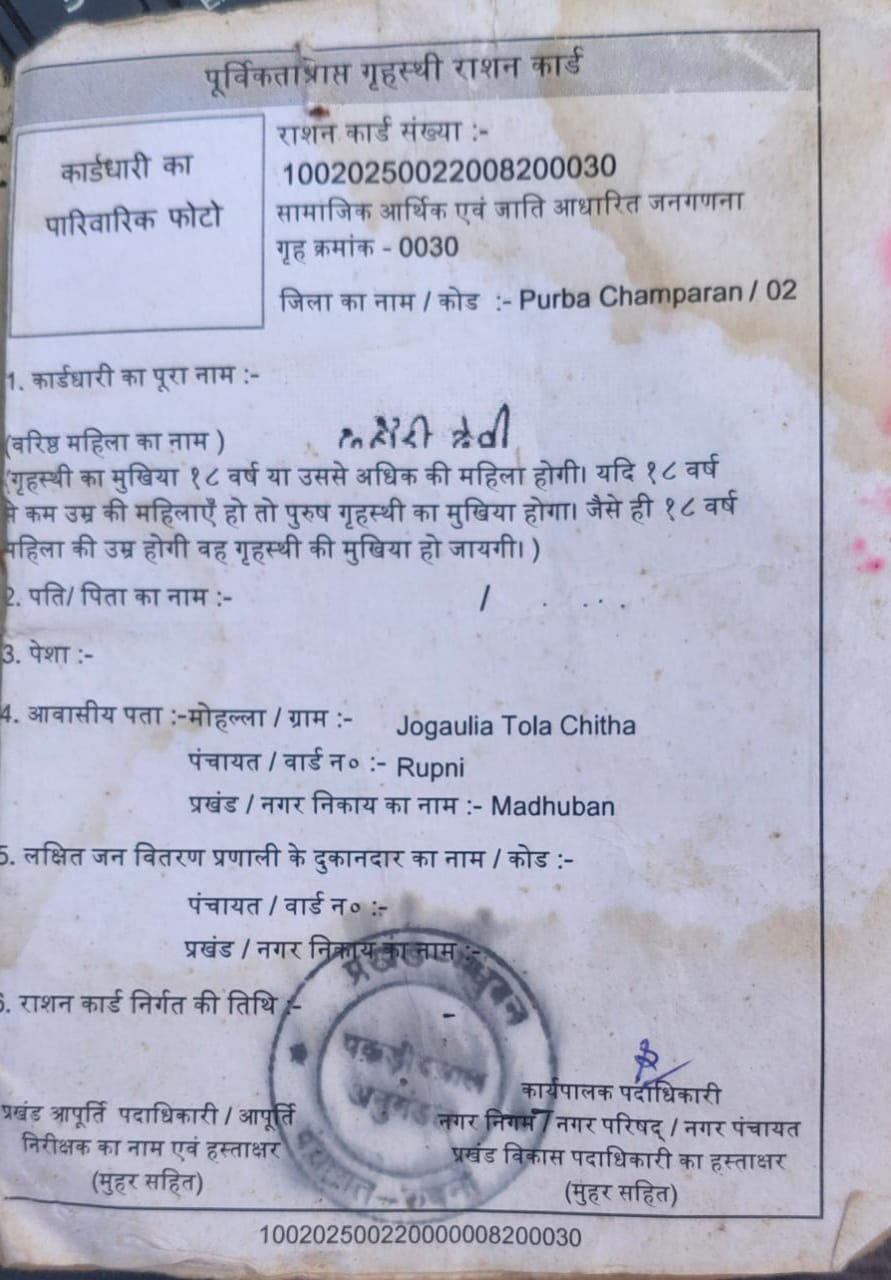 पूर्विकताप्राप्त गृहस्थी राशन कार्ड
कार्डधारी का
पारिवारिक फोटो
राशन कार्ड संख्या :-
10020250022008200030
सामाजिक आर्थिक एवं जाति आधारित जनगणना
गृह क्रमांक - 0030
जिला का नाम / कोड :- Purba Champaran / 02
1. कार्डधारी का पूरा नाम :-
(वरिष्ठ महिला का नाम ) देवी
(गृहस्थी का मुखिया १८ वर्ष या उससे अधिक की महिला होगी। यदि १८ वर्ष
से कम उम्र की महिलाएँ हो तो पुरुष गृहस्थी का मुखिया होगा। जैसे ही १८ वर्ष
महिला की उम्र होगी वह गृहस्थी की मुखिया हो जायगी। )
2. पति/ पिता का नाम :- /
3. पेशा :-
4. आवासीय पता :-मोहल्ला / ग्राम :- Jogaulia Tola Chitha
पंचायत / वार्ड न० :- Rupni
प्रखंड / नगर निकाय का नाम :- Madhuban
5. लक्षित जन वितरण प्रणाली के दुकानदार का नाम / कोड :-
पंचायत / वार्ड न० :-
प्रखंड / नगर निकाय का नाम :-
6. राशन कार्ड निर्गत की तिथि :- -
प्रखंड मधुबन
पकड़ीदयाल
अनुमंडल
पंचायत - रुपनी
प्रखंड आपूर्ति पदाधिकारी / आपूर्ति
निरीक्षक का नाम एवं हस्ताक्षर
(मुहर सहित)
कार्यपालक पदाधिकारी
नगर निगम / नगर परिषद् / नगर पंचायत
प्रखंड विकास पदाधिकारी का हस्ताक्षर
(मुहर सहित)
100202500220000008200030